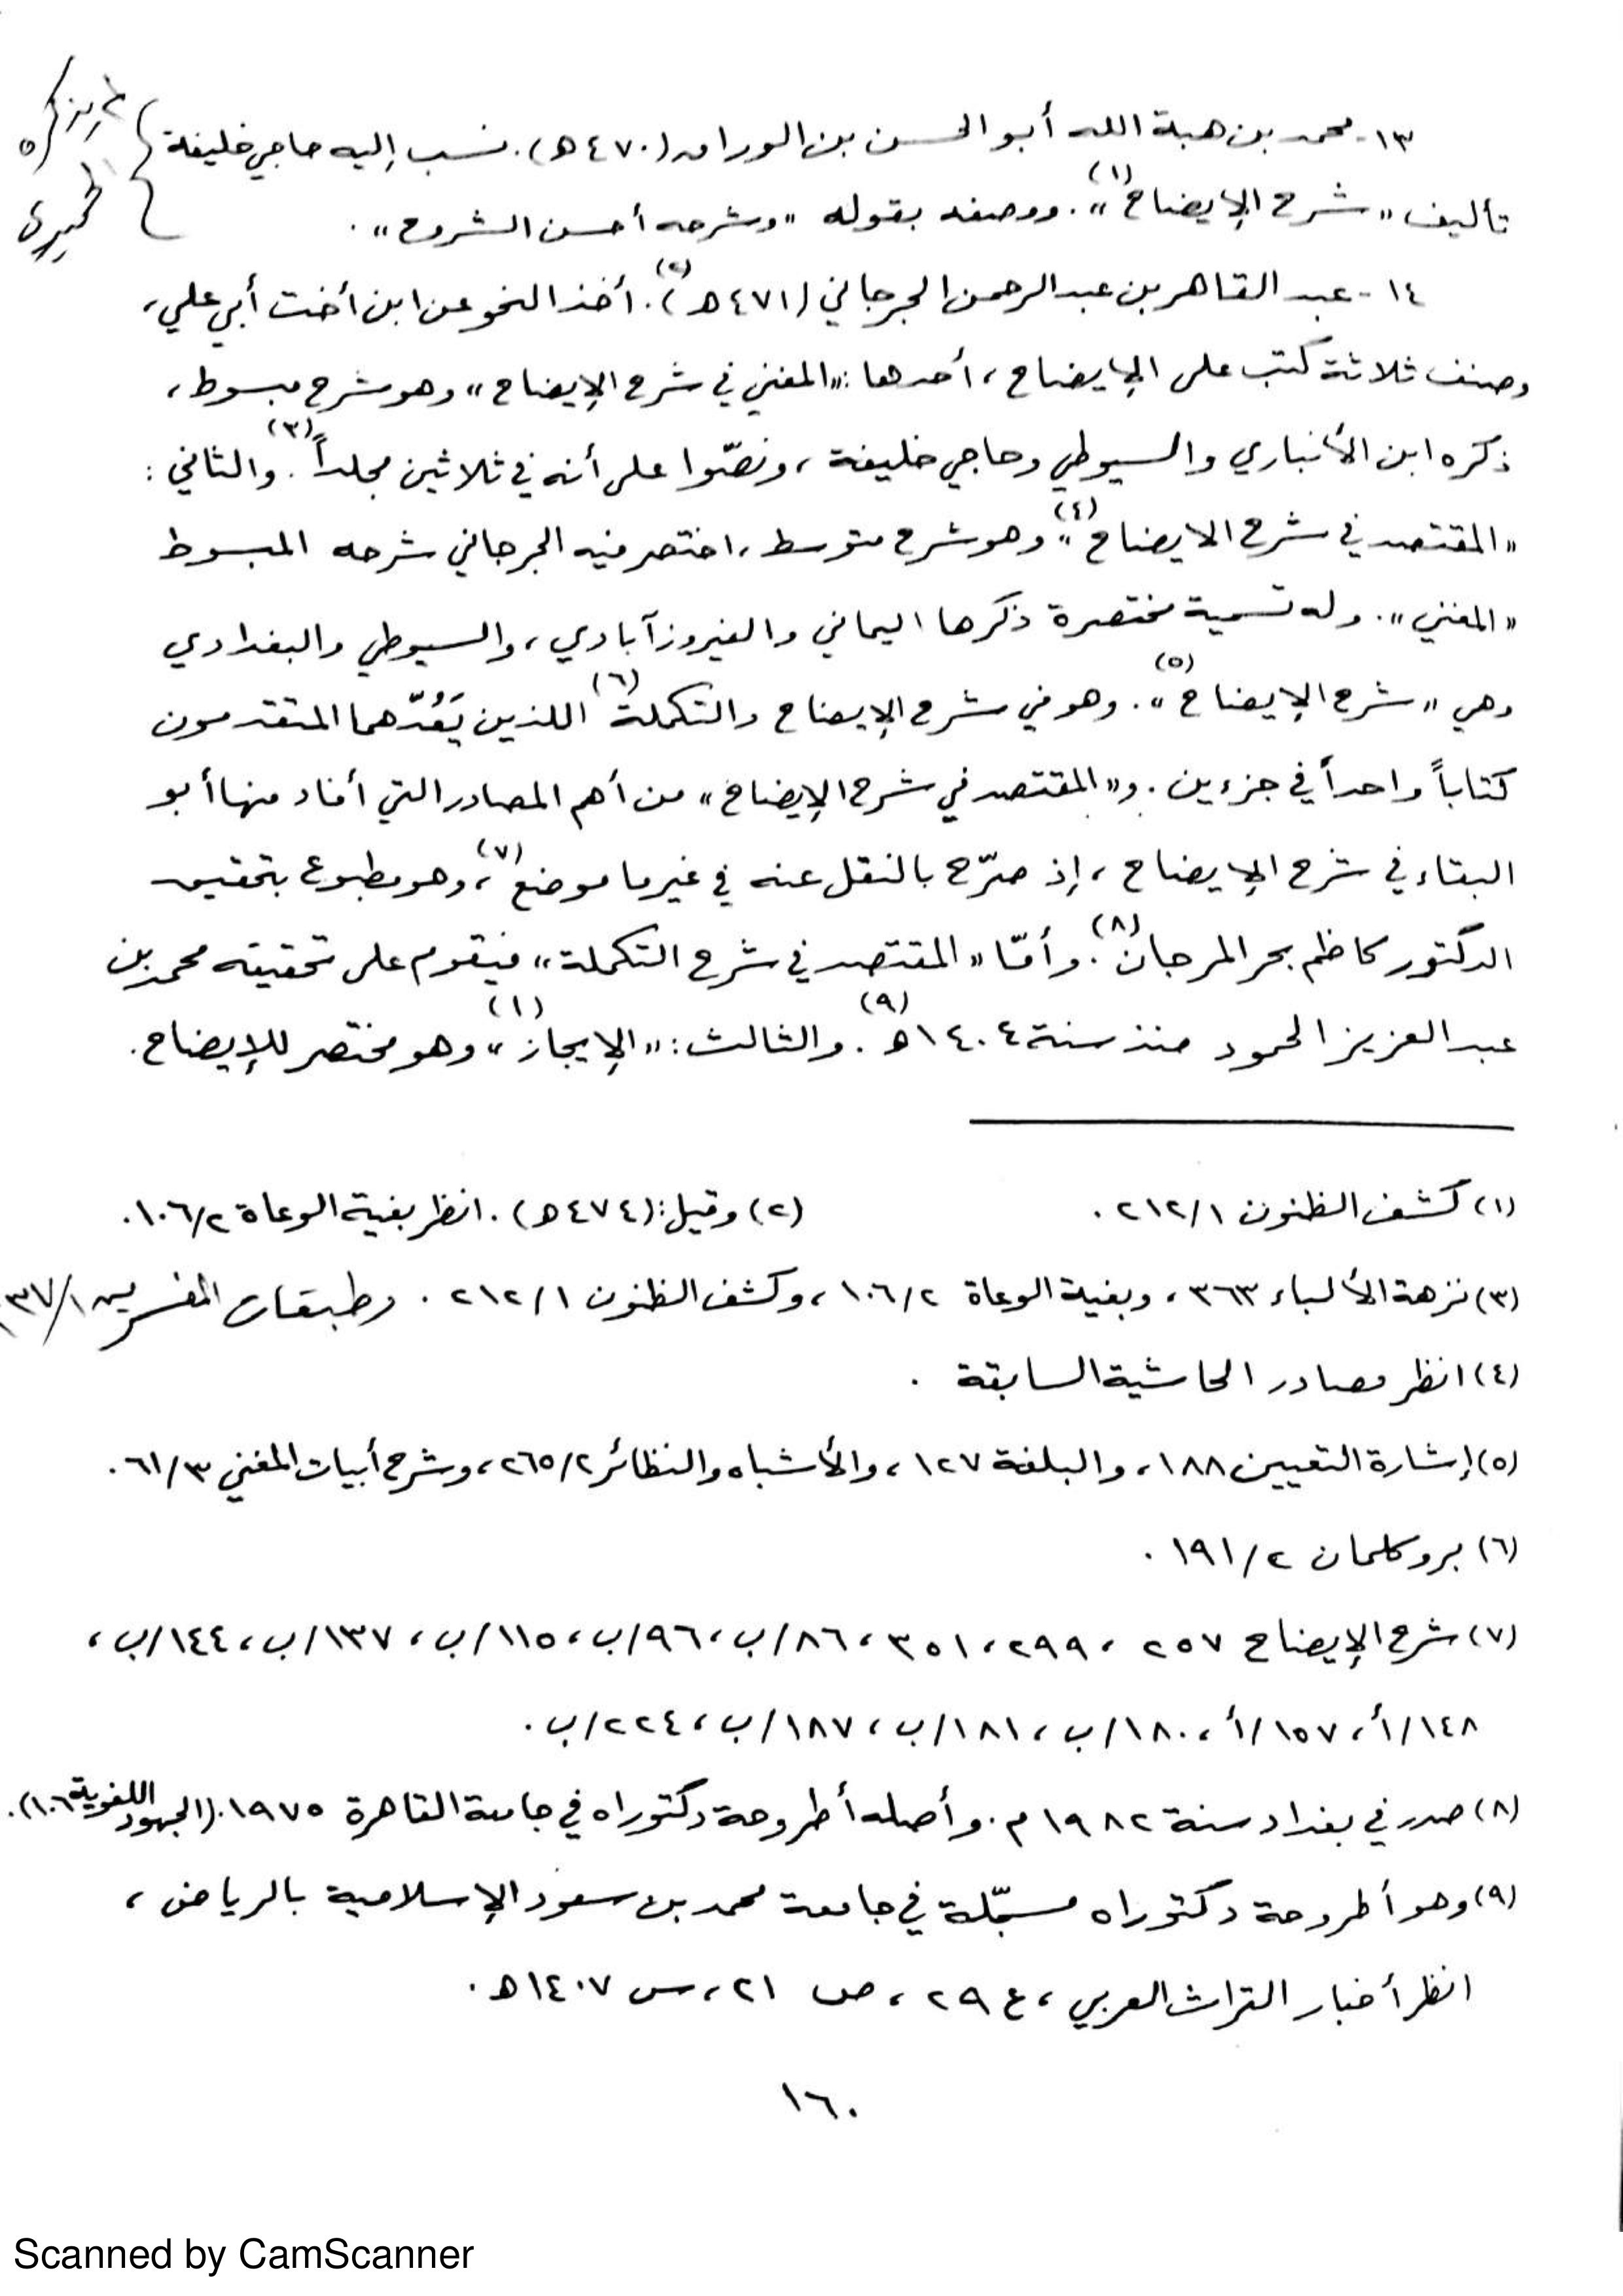 لم يذكره
الحميري
١٣- محمد بن هبة الله أبو الحسن بن الوراق (٤٧٠ھ). نسب إليه حاجي خليفة
تأليف «شرح الإيضاح(١)». ووصفه بقوله «وشرحه أحسن الشروح».
١٤- عبد القاهر بن عبد الرحمن الجرجاني (٤٧١ھ)(٢). أخذ النحو عن ابن أخت أبي علي،
وصنف ثلاثة كتب على الإيضاح، أحدها: «المغني في شرح الإيضاح» وهو شرح مبسوط،
ذكره ابن الأنباري والسيوطي وحاجي خليفة، ونصّوا على أنه في ثلاثين مجلداً(٣). والثاني:
«المقتصد في شرح الايضاح(٤)» وهو شرح متوسط، اختصر فيه الجرجاني شرحه المبسوط
«المغني». وله تسمية مختصرة ذكرها اليماني والفيروزآبادي، والسيوطي والبغدادي
وهي «شرح الإيضاح(٥)». وهو في شرح الإيضاح والتكملة(٦) اللذين يَعُدّهما المتقدمون
كتاباً واحداً في جزءين. و«المقتصد في شرح الإيضاح» من أهم المصادر التي أفاد منها أبو
البقاء في شرح الإيضاح، إذ صرّح بالنقل عنه في غير ما موضع(٧)، وهو مطبوع بتحقيق
الدكتور كاظم بحر المرجان(٨). وأمّا «المقتصد في شرح التكملة» فيقوم على تحقيقه محمد بن
عبد العزيز الحمود منذ سنة ١٤٠٤ھ(٩). والثالث: «الإيجاز(١)» وهو مختصر للإيضاح.
(١) كشف الظنون ٢١٢/١. (٢) وقيل: (٤٧٤ھ). انظر بغية الوعاة ١٠٦/٢.
(٣) نزهة الألباء ٣٦٣، وبغية الوعاة ١٠٦/٢، وكشف الظنون ٢١٢/١. وطبقات المفسرين
(٤) انظر مصادر الحاشية السابقة.
(٥) إشارة التعيين ١٨٨، والبلغة ١٢٧، والأشباه والنظائر ٢٦٥/٢، وشرح أبيات المغني ٦١/٣.
(٦) بروكلمان ١٩١/٢.
(٧) شرح الإيضاح ٢٥٧، ٢٩٩، ٣٥١، ٨٦/ب، ٩٦/ب، ١١٥/ب، ١٣٧/ب، ١٤٤/ب،
١٤٨/أ، ١٥٧/أ، ١٨٠/ب، ١٨١/ب، ١٨٧/ب، ٢٢٤/ب.
(٨) صدر في بغداد سنة ١٩٨٢م. وأصله أطروحة دكتوراه في جامعة القاهرة ١٩٧٥. (الجهود اللغوية ١٠٦).
(٩) وهو أطروحة دكتوراه مسجّلة في جامعة محمد بن سعود الإسلامية بالرياض،
انظر أخبار التراث العربي، ع ٢٩، ص ٢١، س ١٤٠٧ھ.
١٦٠
Scanned by CamScanner